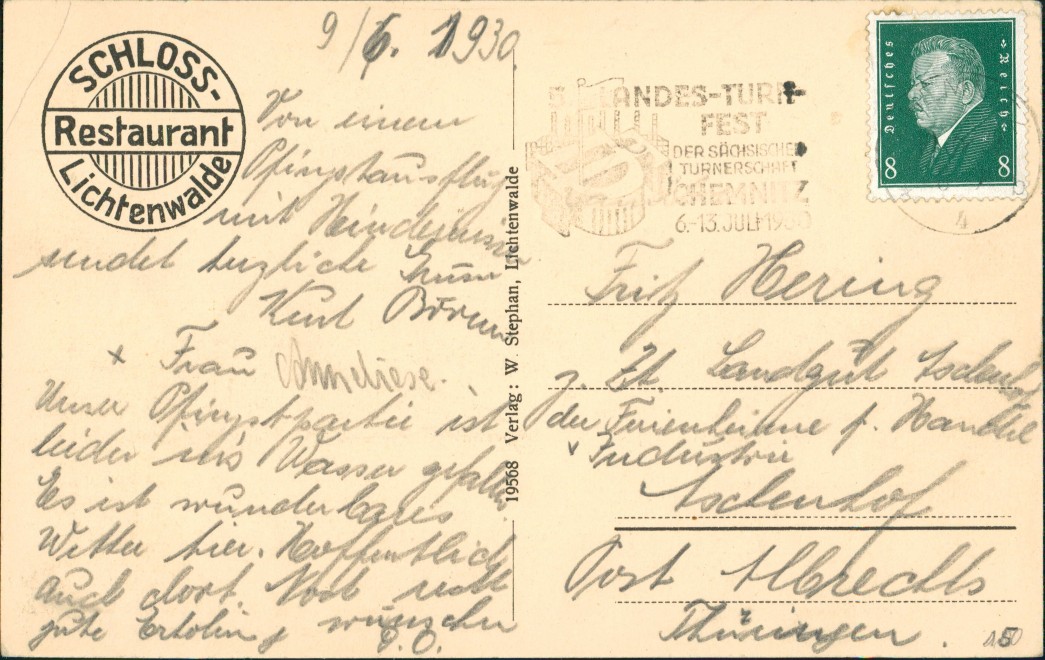 SCHLOSS-
Restaurant
Lichtenwalde
9/6. 1930
Von einem
Pfingstausflug
mit Hindernissen
sendet herzliche Grüsse
Kurt
x Frau Anneliese.
Unser Pfingstpartie ist
leider ins Wasser gefallen
Es ist wunderbares
Wetter hier. Hoffentlich
auch dort. recht
gute Erholung wünschen
D.O.
19568 Verlag: W. Stephan, Lichtenwalde
LANDES-TURN-
FEST
DER SÄCHSISCHEN
TURNERSCHAFT
CHEMNITZ
6.-13. JULI 1930
4
Deutsches Reich
8 8
Fritz Hering
z. Zt. Landgut Aschenhof
der Ferienheime f. Handel
Industrie
Aschenhof
Post Albrechts
Thüringen.